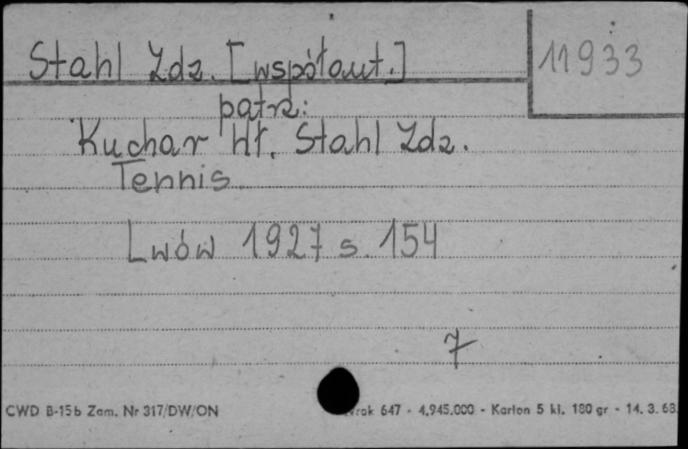 Stahl Zdz. [współaut.]
11933
patrz:
Kuchar Wł. Stahl Zdz.
Tennis.
Lwów 1927 s. 154
7
CWD B-15b Zam. Nr 317/DW/ON
647 - 4.945.000 - Karton 5 kl. 180 gr - 14. 3. 68.